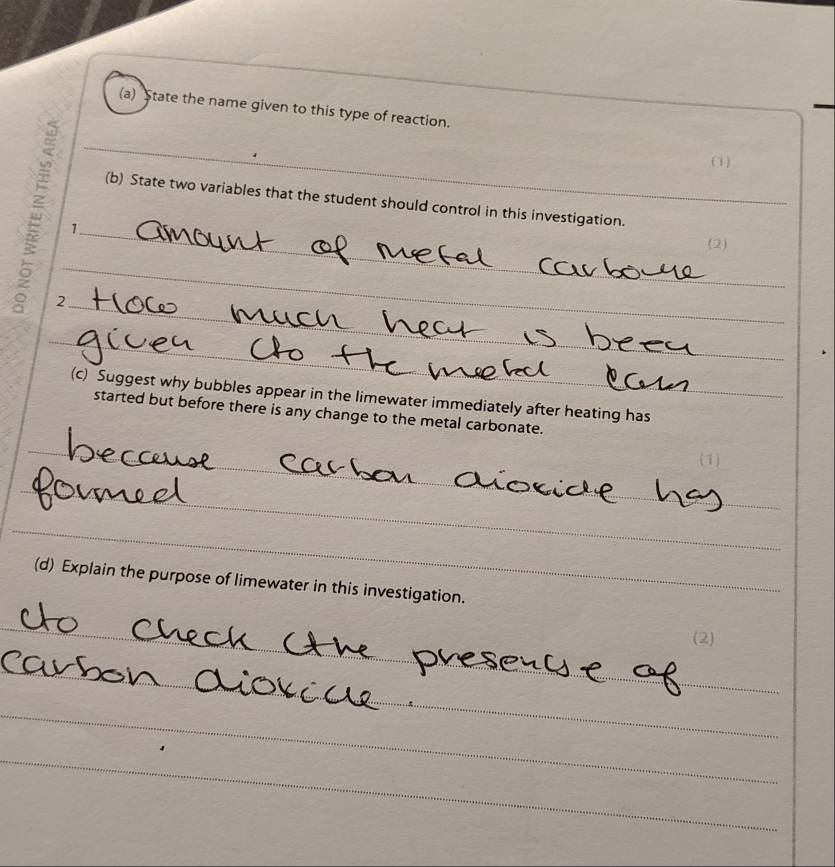 (a) State the name given to this type of reaction.
(1)
(b) State two variables that the student should control in this investigation.
(2)
1 amount of metal carbone
2 How much heat is been
given to the metal
(c) Suggest why bubbles appear in the limewater immediately after heating has
started but before there is any change to the metal carbonate.
(1)
because carbon dioxide has
formed
(d) Explain the purpose of limewater in this investigation.
(2)
to check the presencse of
carbon dioxide.
DO NOT WRITE IN THIS AREA